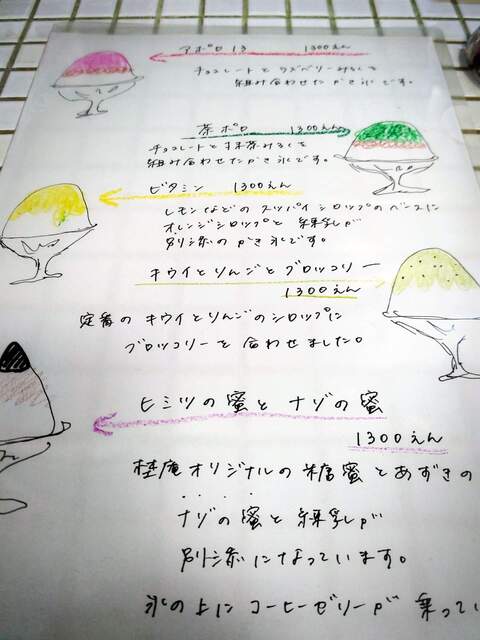 アポロ13 1300えん
チョコレートとラズベリーみるくを
組み合わせたかき氷です。
茶ポロ 1300えん
チョコレートと抹茶みるくを
組み合わせたかき氷です。
ビタミン 1300えん
レモンなどのスッパイシロップのベースに
オレンジシロップと練乳が
別添のかき氷です。
キウイとりんごとブロッコリー
1300えん
定番のキウイとりんごのシロップに
ブロッコリーを合わせました。
ヒミツの蜜とナゾの蜜
1300えん
埜庵オリジナルの糖蜜とあずきの
ナゾの蜜と練乳が
別添になっています。
氷の上にコーヒーゼリーが乗ってい